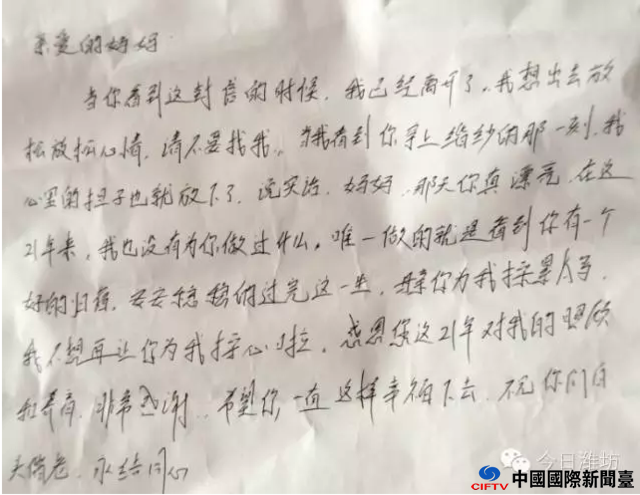 亲爱的妈妈
当你看到这封信的时候,我已经离开了。我想出去放
松放松心情,请不要找我。当我看到你穿上婚纱的那一刻,我
心里的担子也就放下了,说实话,妈妈,那天你真漂亮,在这
21年来,我也没有为你做过什么,唯一做的就是看到你有一个
好的归宿,安安稳稳的过完这一生,
你为我操累
我不想再让你为我操心
感恩您这21年对我的照顾
和养育,非常感谢,希望你一直这样幸福下去,祝你们白
头偕老,永结同心
今日潍坊
CIFTV 中國國際新聞臺